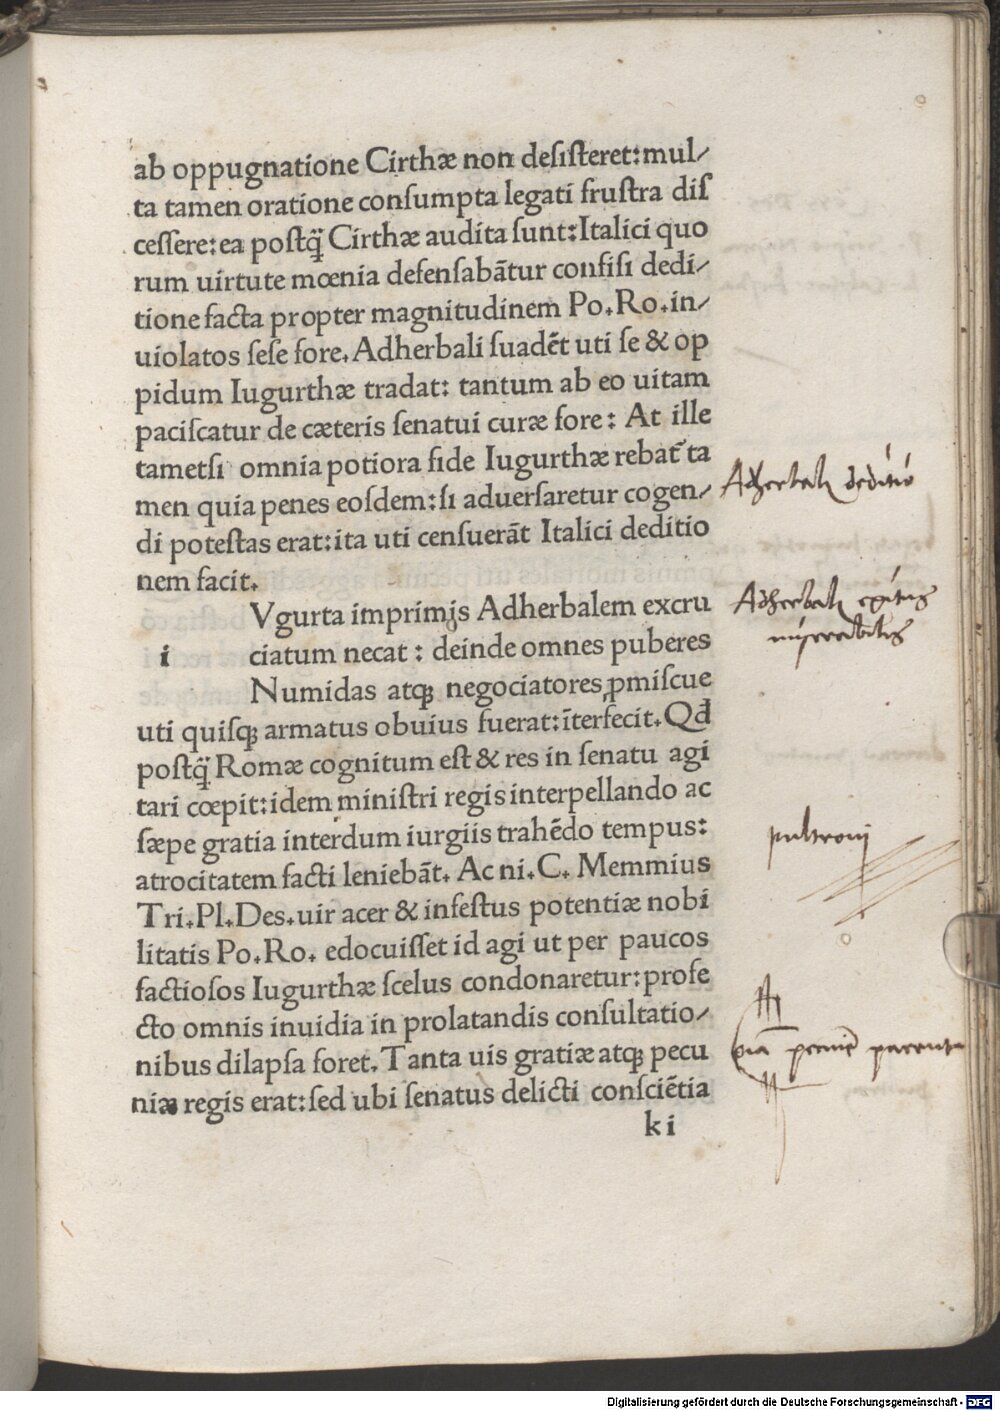 ab oppugnatione Cirthæ non deſiſteret:mul⸗
ta tamen oratione conſumpta legati fruſtra diſ
ceſſere:ea poſtq̃ Cirthæ audita ſunt:Italici quo
rum uirtute mœnia defenſabãtur confiſi dedi⸗
tione facta propter magnitudinem Po.Ro.in⸗
uiolatos ſeſe fore.Adherbali ſuadẽt uti ſe & op
pidum Iugurthæ tradat: tantum ab eo uitam
paciſcatur de cæteris ſenatui curæ fore: At ille
tametſi omnia potiora fide Iugurthæ rebat᷑ ta
men quia penes eoſdem:ſi aduerſaretur cogen⸗
di poteſtas erat:ita uti cenſuerãt Italici deditio
nem facit.
Vgurta imprimis Adherbalem excru
i ciatum necat : deinde omnes puberes
Numidas atqꝫ negociatores ꝓmiſcue
uti quiſqꝫ armatus obuius fuerat:ĩterfecit.Qđ
poſtq̃ Romæ cognitum eſt & res in ſenatu agi
tari cœpit:idem miniſtri regis interpellando ac
ſæpe gratia interdum iurgiis trahẽdo tempus:
atrocitatem facti leniebãt. Ac ni.C. Memmius
Tri.Pl.Des.uir acer & infeſtus potentiæ nobi
litatis Po.Ro. edocuiſſet id agi ut per paucos
factioſos Iugurthæ ſcelus condonaretur:profe
cto omnis inuidia in prolatandis conſultatio⸗
nibus dilapſa foret.Tanta uis gratiæ atqꝫ pecu
niæ regis erat:ſed ubi ſenatus delicti conſciẽtia
k i
Adherbalis deditio
Adherbalis exitus
miserabilis
pultronj
oĩa pecunie
Digitalisierung gefördert durch die Deutsche Forschungsgemeinschaft - DFG